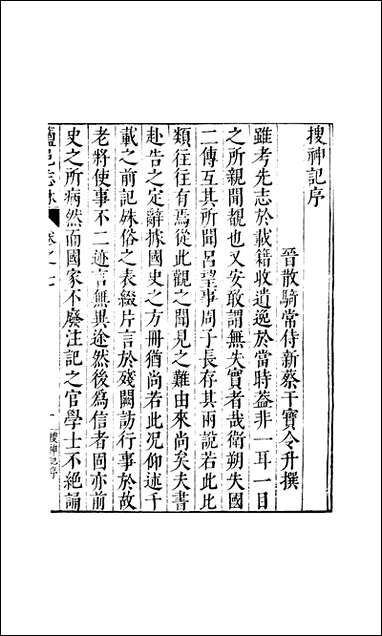 搜神記序
晉散騎常侍新蔡干寶令升撰
雖考先志於載籍收遺逸於當時葢非一耳一目
之所親聞覩也又安敢謂無失實者哉衛朔失國
二傳互其所聞呂望事周子長存其兩說若此比
類往往有焉從此觀之聞見之難由來尚矣夫書
赴告之定辭據國史之方冊猶尚若此况仰述千
載之前記殊俗之表綴片言於殘闕訪行事於故
老將使事不二迹言無異途然後為信者固亦前
史之所病然而國家不廢注記之官學士不絕誦
鹽邑志林
卷之七
一
搜神記序